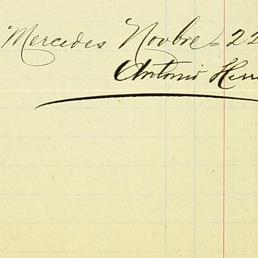 Mercedes Novbre 22
Antonio